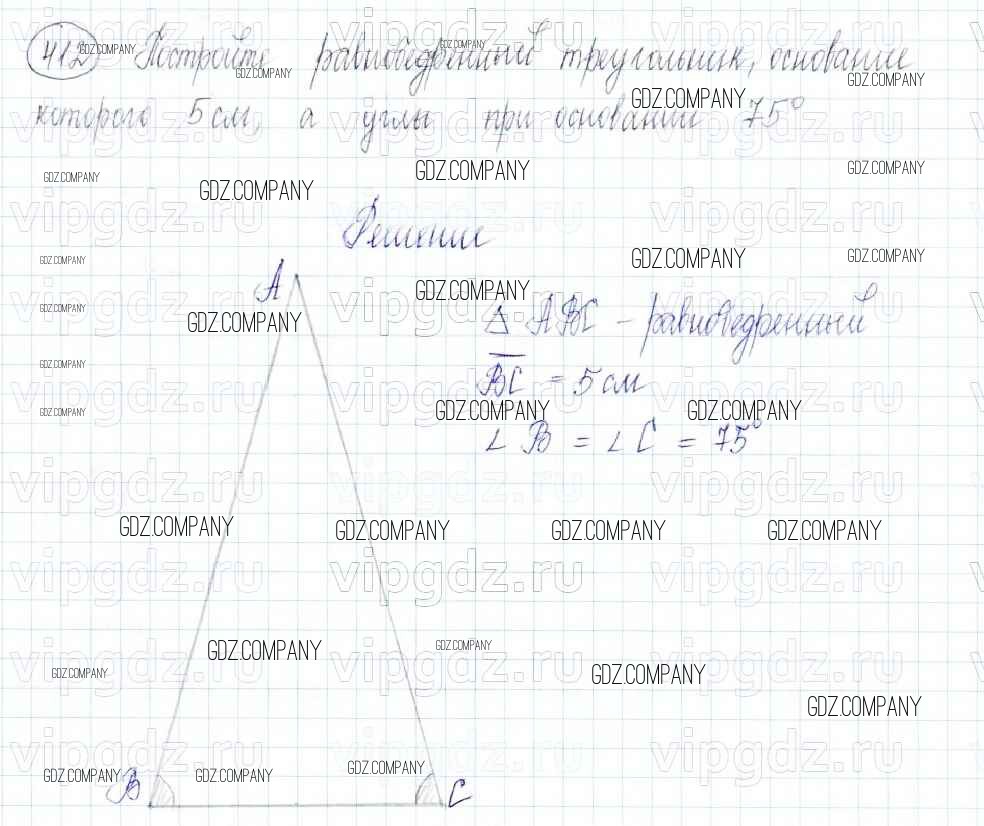 412 Постройте равнобедренный треугольник, основание
которого 5 см, а углы при основании 75°
Решение
A
△ ABC – равнобедренный
BC = 5 см
∠ B = ∠ C = 75°
B
C
GDZ.COMPANY
vipgdz.ru